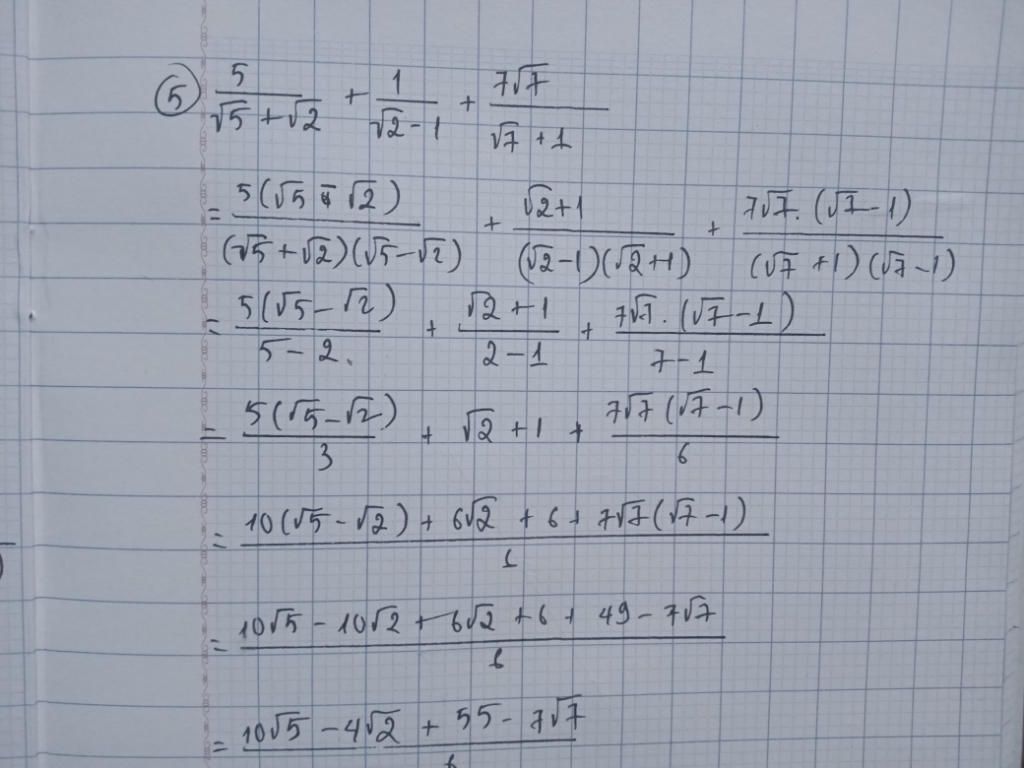 ⑤ 5/(√5+√2) + 1/(√2-1) + 7√7/(√7+1)
= 5(√5-√2)/((√5+√2)(√5-√2)) + (√2+1)/((√2-1)(√2+1)) + 7√7.(√7-1)/((√7+1)(√7-1))
= 5(√5-√2)/(5-2.) + (√2+1)/(2-1) + 7√7.(√7-1)/(7-1)
= 5(√5-√2)/3 + √2+1 + 7√7(√7-1)/6
= (10(√5-√2)+6√2+6+7√7(√7-1))/6
= (10√5-10√2+6√2+6+49-7√7)/6
= (10√5-4√2+55-7√7)/6